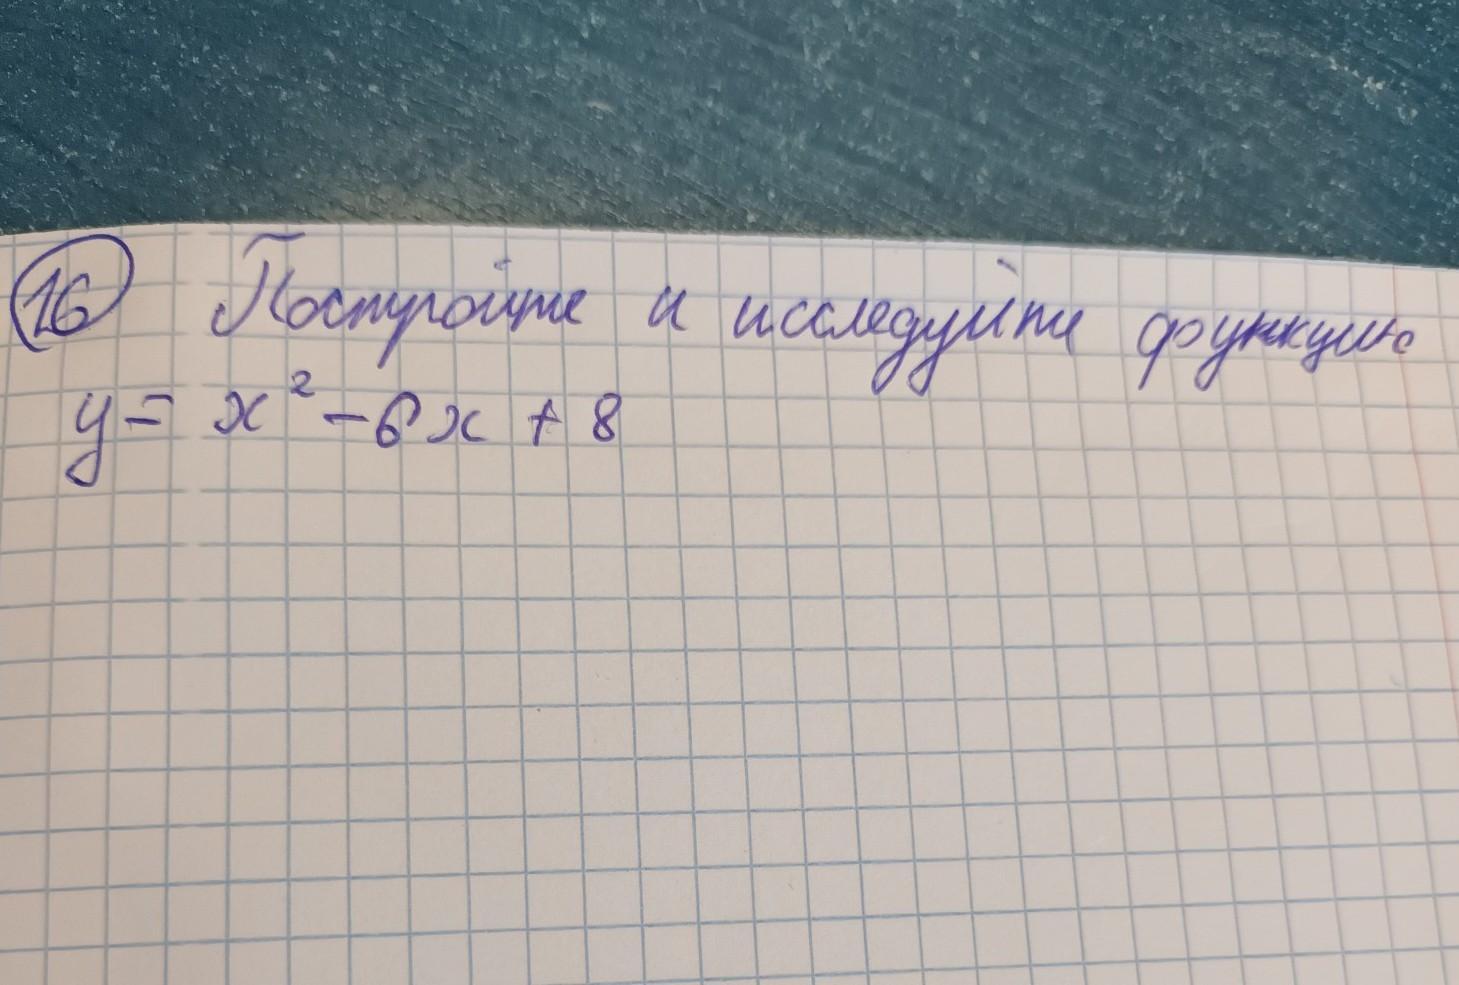 16 Постройте и исследуйте функцию
y = x² - 6x + 8